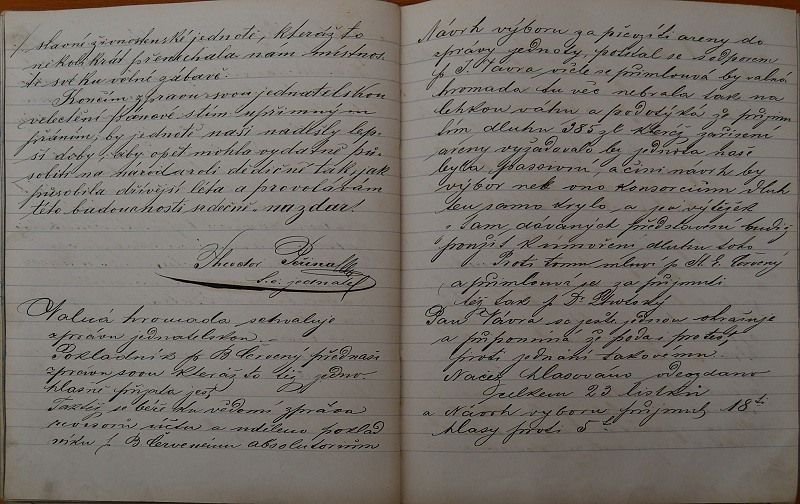 slavné živnostenské jednotě, kteráž to
několikrát přenechala nám místnos-
ti své ku volné zábavě.
Končím zprávu svou jednatelskou
velectění pánové s tím upřímným
přáním, by jednotě naší nadešly lep-
ší doby, aby opět mohla vydatně pů-
sobiti na národa roli dědičné tak, jak
působila dřívější léta a provolávám
této budoucnosti srdečné nazdar!
Theodor
t. č. jednatel
Valná hromada schvaluje
zprávu jednatelskou.
Pokladník p. B. Červený přednáší
zprávu svou kteráž to též jedno-
hlasně přijata jest.
Taktéž se béře ku vědomí zpráva
revisorů účtů a uděleno poklad
níku p. B. Červenému absolutorium
Návrh výboru za převzetí areny do
zprávy jednoty, potkal se s odporem
p. J. Vávra vřele se přimlouvá by valná
hromada tu věc nebrala tak na
lehkou váhu a podotýká že přijmu
tím dluhu 385 zl. kterej zařízení
areny vyžadovalo by jednota naše
byla passivní, a činí návrh by
výbor neb ono konsorcium dluh
ten samo krylo, a jen výtěžek
s tam dávaných představení budiž
použit k umoření dluhu toho
Proti tomu mluví p. Červený
a přimlouvá se za přijmutí
též tak p. Dr.
Pan Vávra se ještě jednou ohražuje
a připomíná že podá i protest
proti jednání takovému.
Načež hlasováno odevzdáno
celkem 23 lístků
a Návrh výboru přijmut 18ti
hlasy proti 5ti